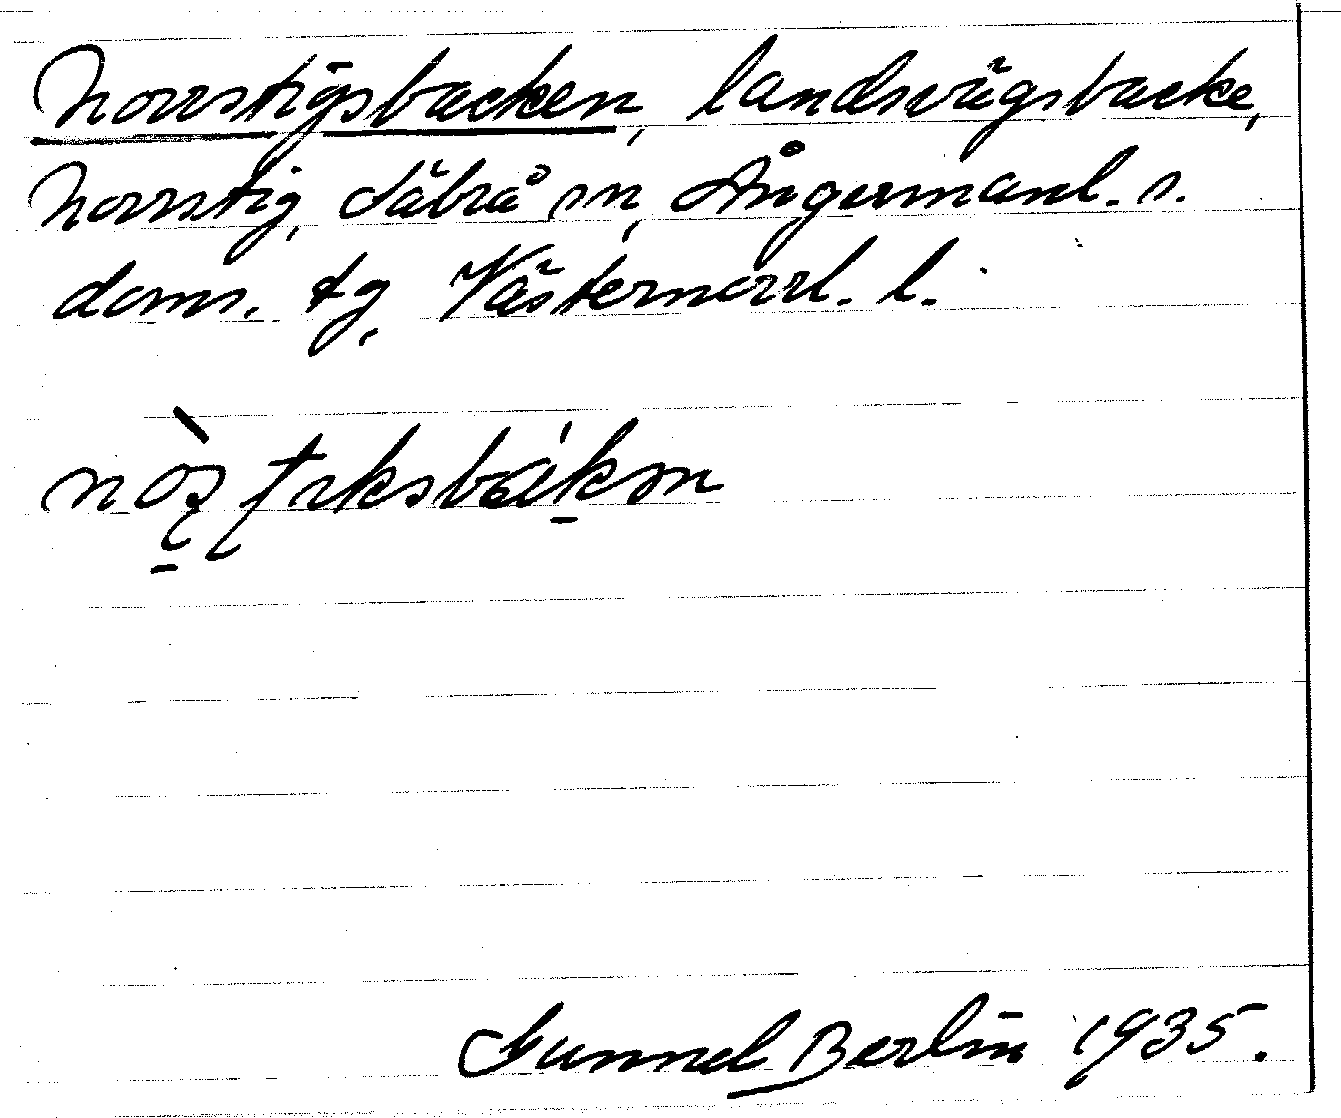 Norrstigsbacken, landsvägsbacke,
Norrstig, Säbrå sn, Ångermanl. s.
doms. tg, Västernorrl. l.
Gunnel Berlin 1935.